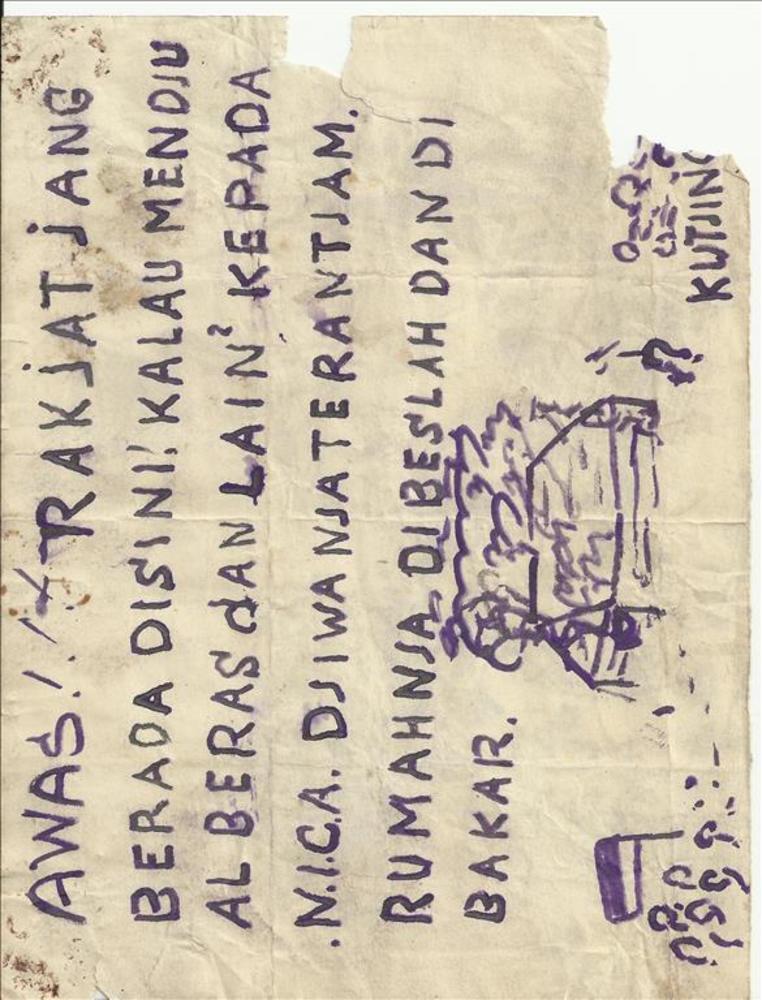 AWAS!! RAKJAT JANG
BERADA DISINI! KALAU MENDJU
AL BERAS dAN LAIN² KEPADA
.N.I.C.A. DJIWANJA TERANTJAM.
RUMAHNJA DIBESLAH DAN DI
BAKAR.
KUTJING